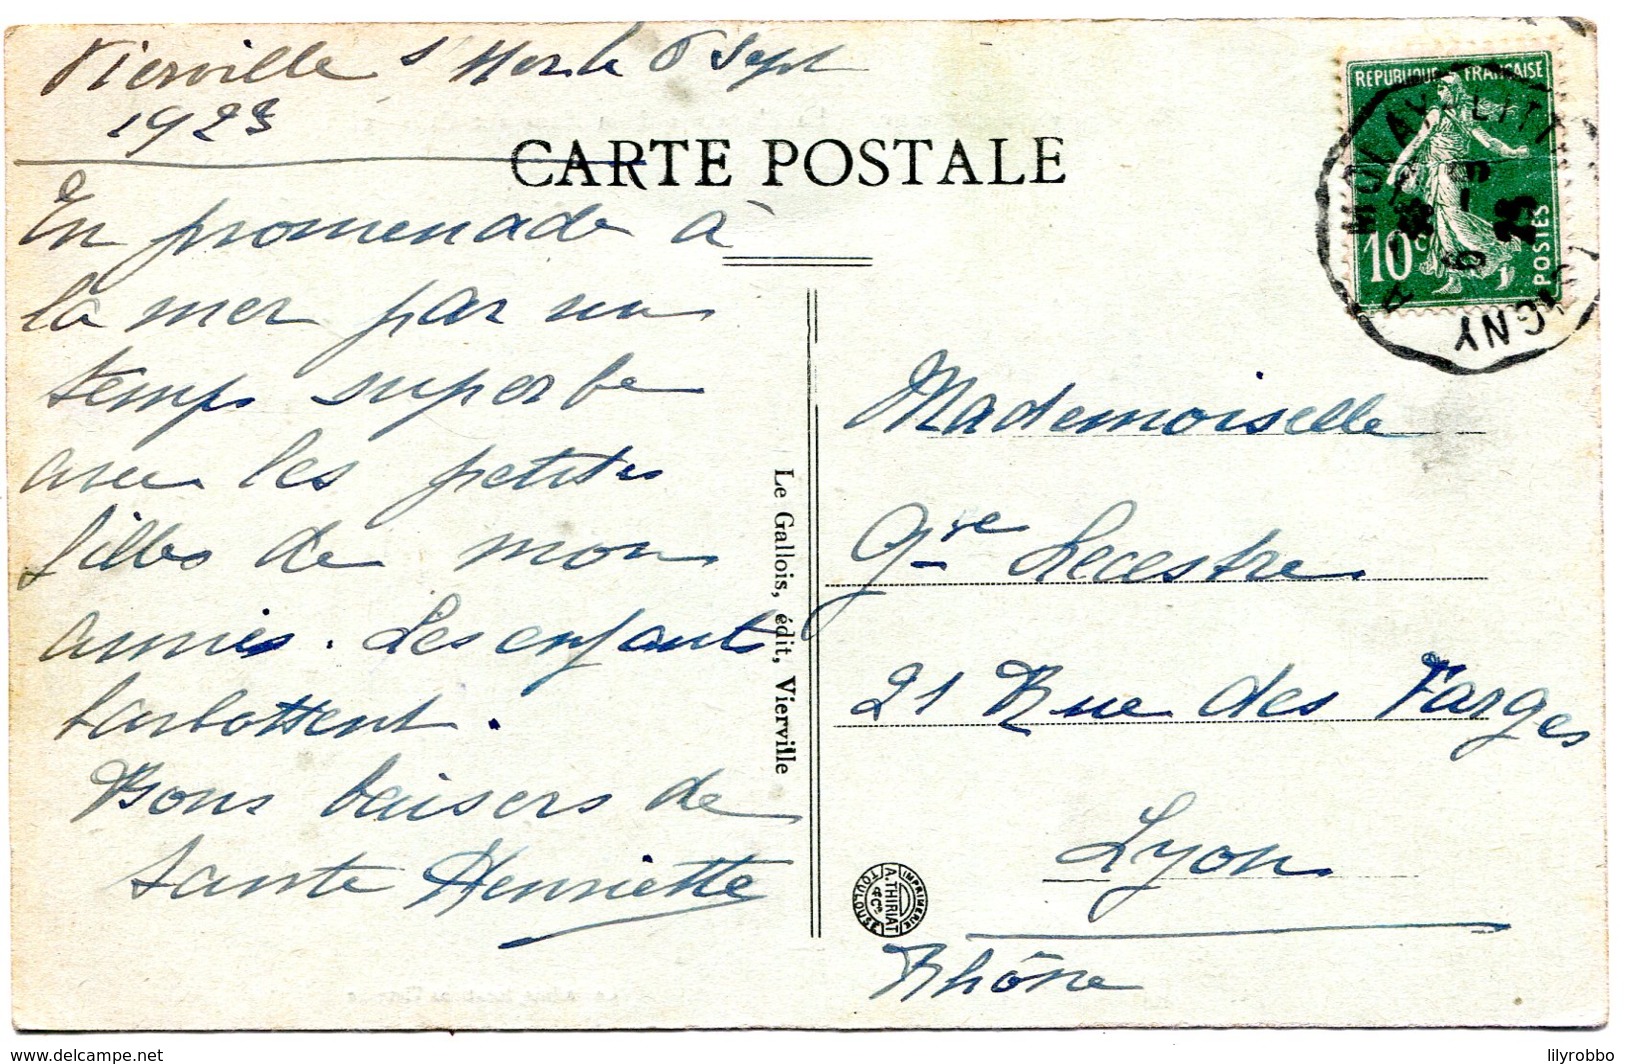 Vierville s/Mer le 6 Sept
1923
CARTE POSTALE
En promenade à
la mer par un
temps superbe
avec les petites
filles de mon
amies. Les enfants
barbottent.
Bons baisers de
tante Henriette
Le Gallois, édit, Vierville
REPUBLIQUE FRANÇAISE
10c
POSTES
MOLAY-LITT
GNY
Mademoiselle
Gie Lecestre
21 Rue des Farges
Lyon
Rhône
IMPRIMERIE
A. THIRIAT
& Cie
TOULOUSE
lilyrobbo
www.delcampe.net